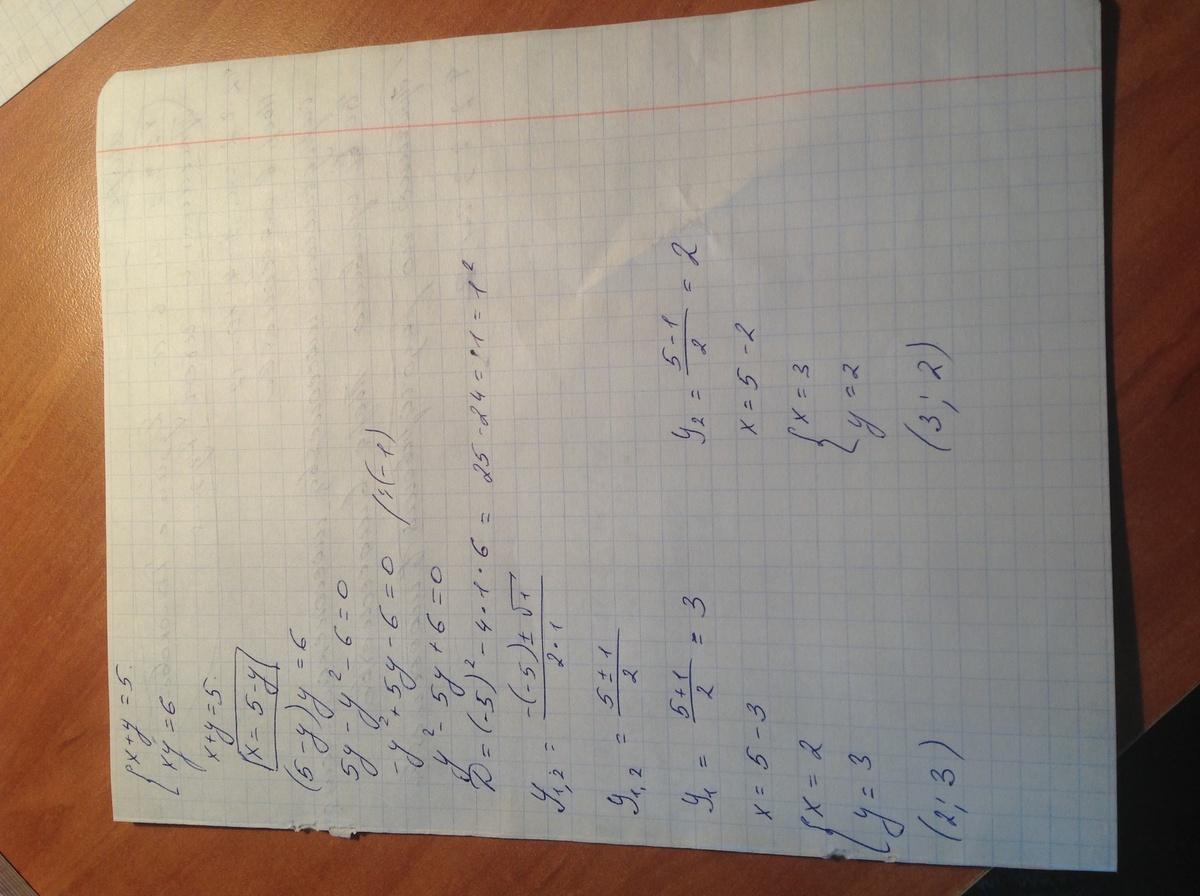 { x+y=5
xy=6
x+y=5
x=5-y
(5-y)y=6
5y-y²-6=0
-y²+5y-6=0 /:(-1)
y²-5y+6=0
D=(-5)²-4·1·6=25-24=1=1²
y₁,₂ = (-(-5)±√1)/(2·1)
y₁,₂ = (5±1)/2
y₁ = (5+1)/2 = 3
x=5-3
{ x=2
y=3
(2;3)
y₂ = (5-1)/2 = 2
x=5-2
{ x=3
y=2
(3;2)